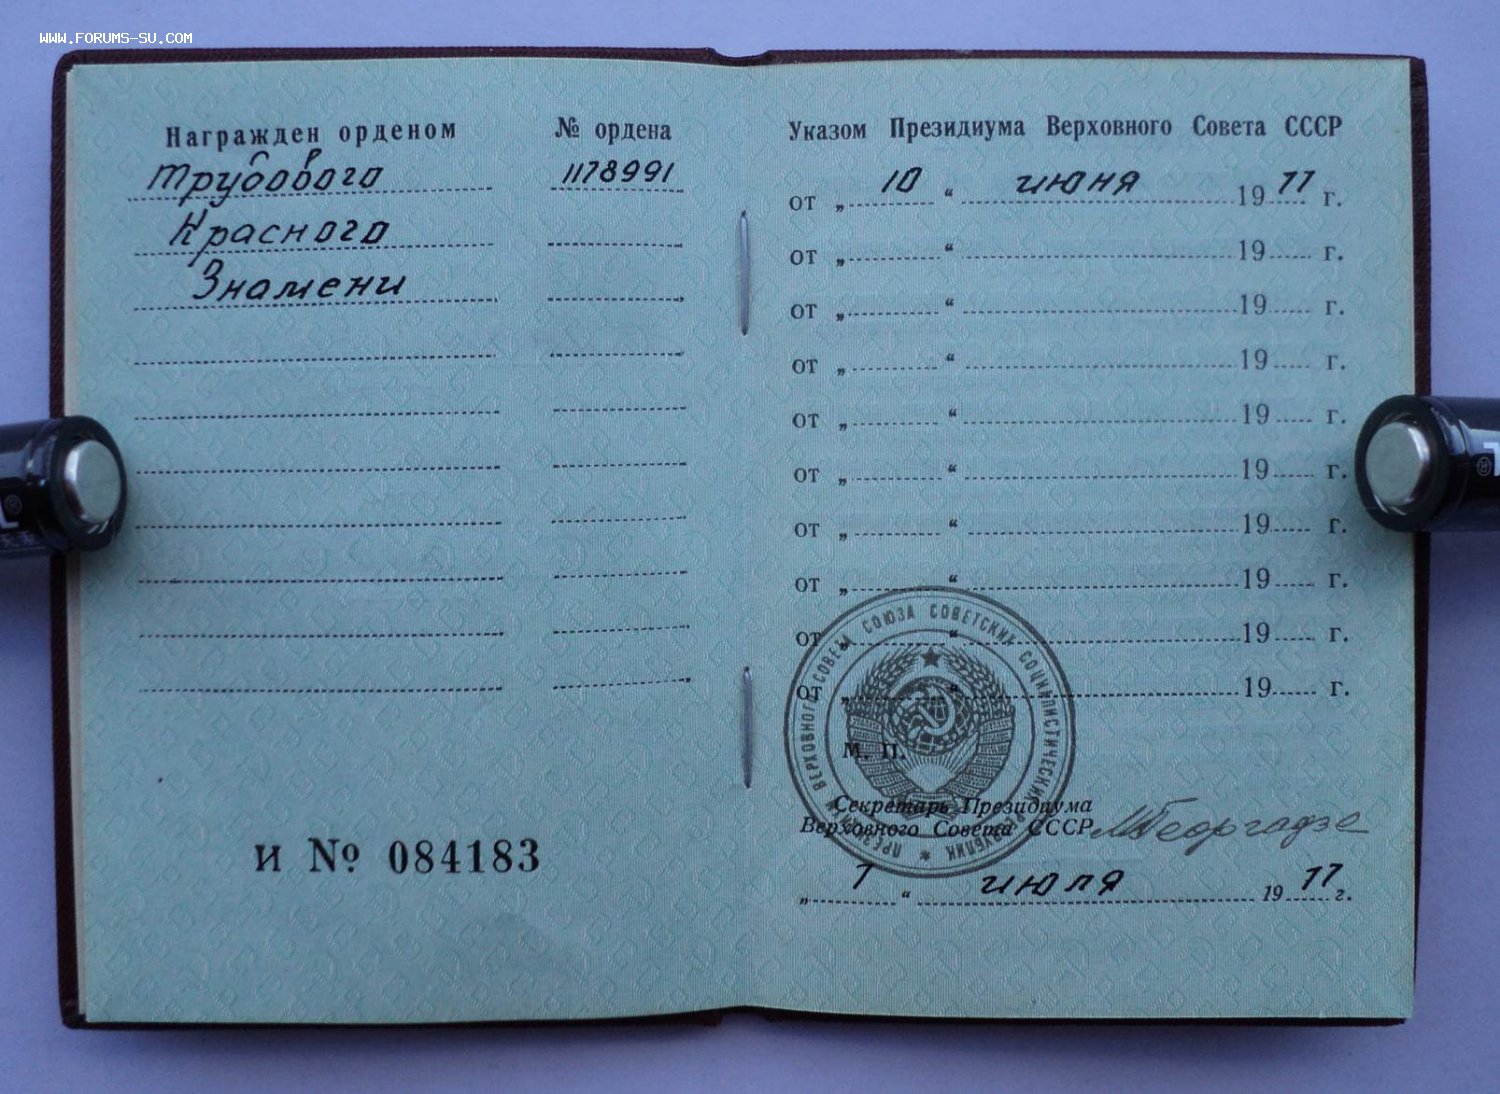 WWW.FORUMS-SU.COM
Награжден орденом № ордена
Трудового 1178991
Красного
Знамени
и № 084183
Указом Президиума Верховного Совета СССР
от „ 10 “ июня 19 77 г.
от „ “ 19 г.
от „ “ 19 г.
от „ “ 19 г.
от „ “ 19 г.
от „ “ 19 г.
от „ “ 19 г.
от „ “ 19 г.
от „ “ 19 г.
от „ “ 19 г.
ПРЕЗИДИУМ ВЕРХОВНОГО СОВЕТА СОЮЗА СОВЕТСКИХ СОЦИАЛИСТИЧЕСКИХ РЕСПУБЛИК
М. П.
Секретарь Президиума
Верховного Совета СССР МГеоргадзе
„ 7 “ июля 19 77 г.